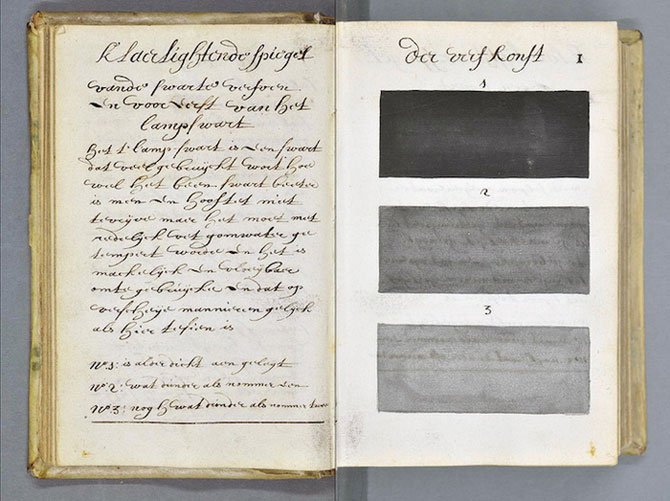 klaerlightende spiegel
vande swarte verfven
en voor eerst van het
lampswart
het lampswart is een swart
dat veel gebruyckt wort hoe
wel het been swart beeter
is men en hooftet niet
tevrijve maer het moet met
redelyck vet gomwater ge
tempert worde en het is
mackelyck en vloeybaer
omte gebruycke en dat op
verscheye mannieren gelyck
als hier tesien is
No 1: is alder dicht aen gelegt
No 2: wat dunder als nommer een
No 3: nog het wat dunder als nommer twee
der verfkonst
1
1
2
3